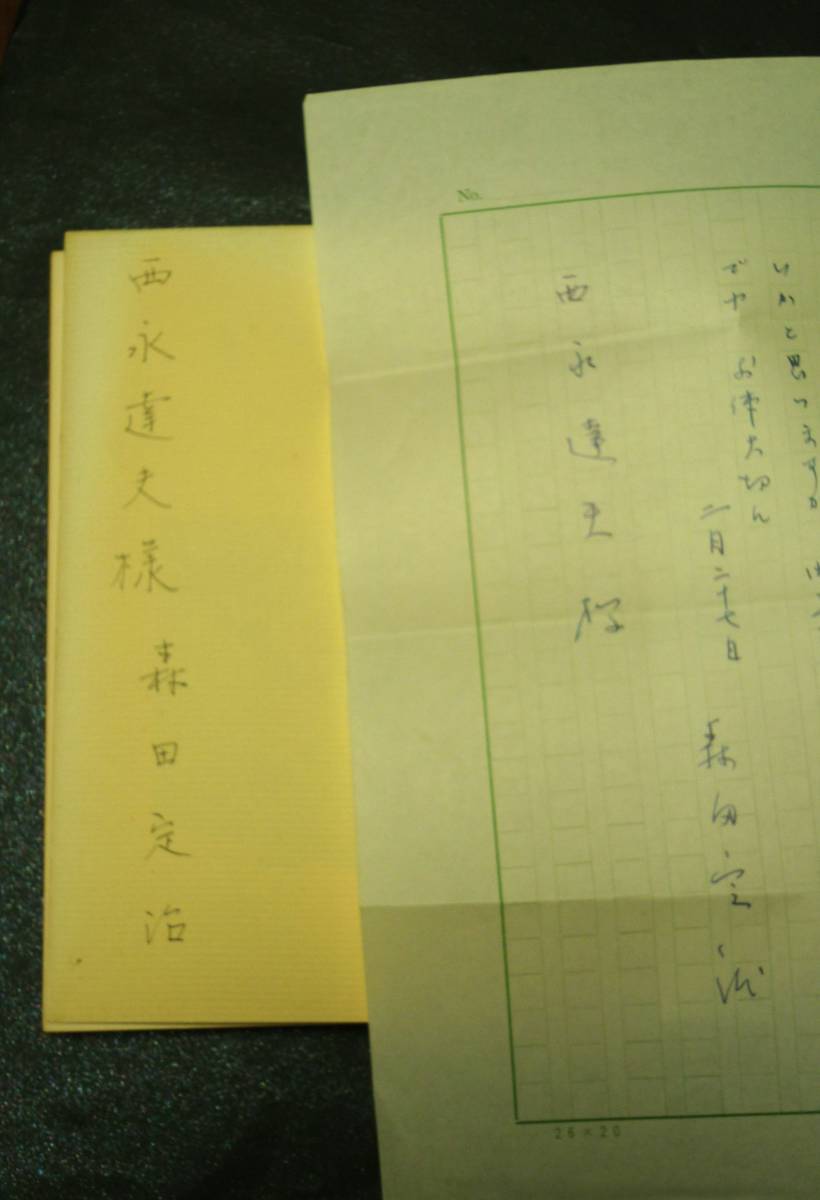 西永達夫様
森田定治
No.
いかと思っていますが
でや お体大切に
二月二十七日 森田定治
西永達夫様
26×20